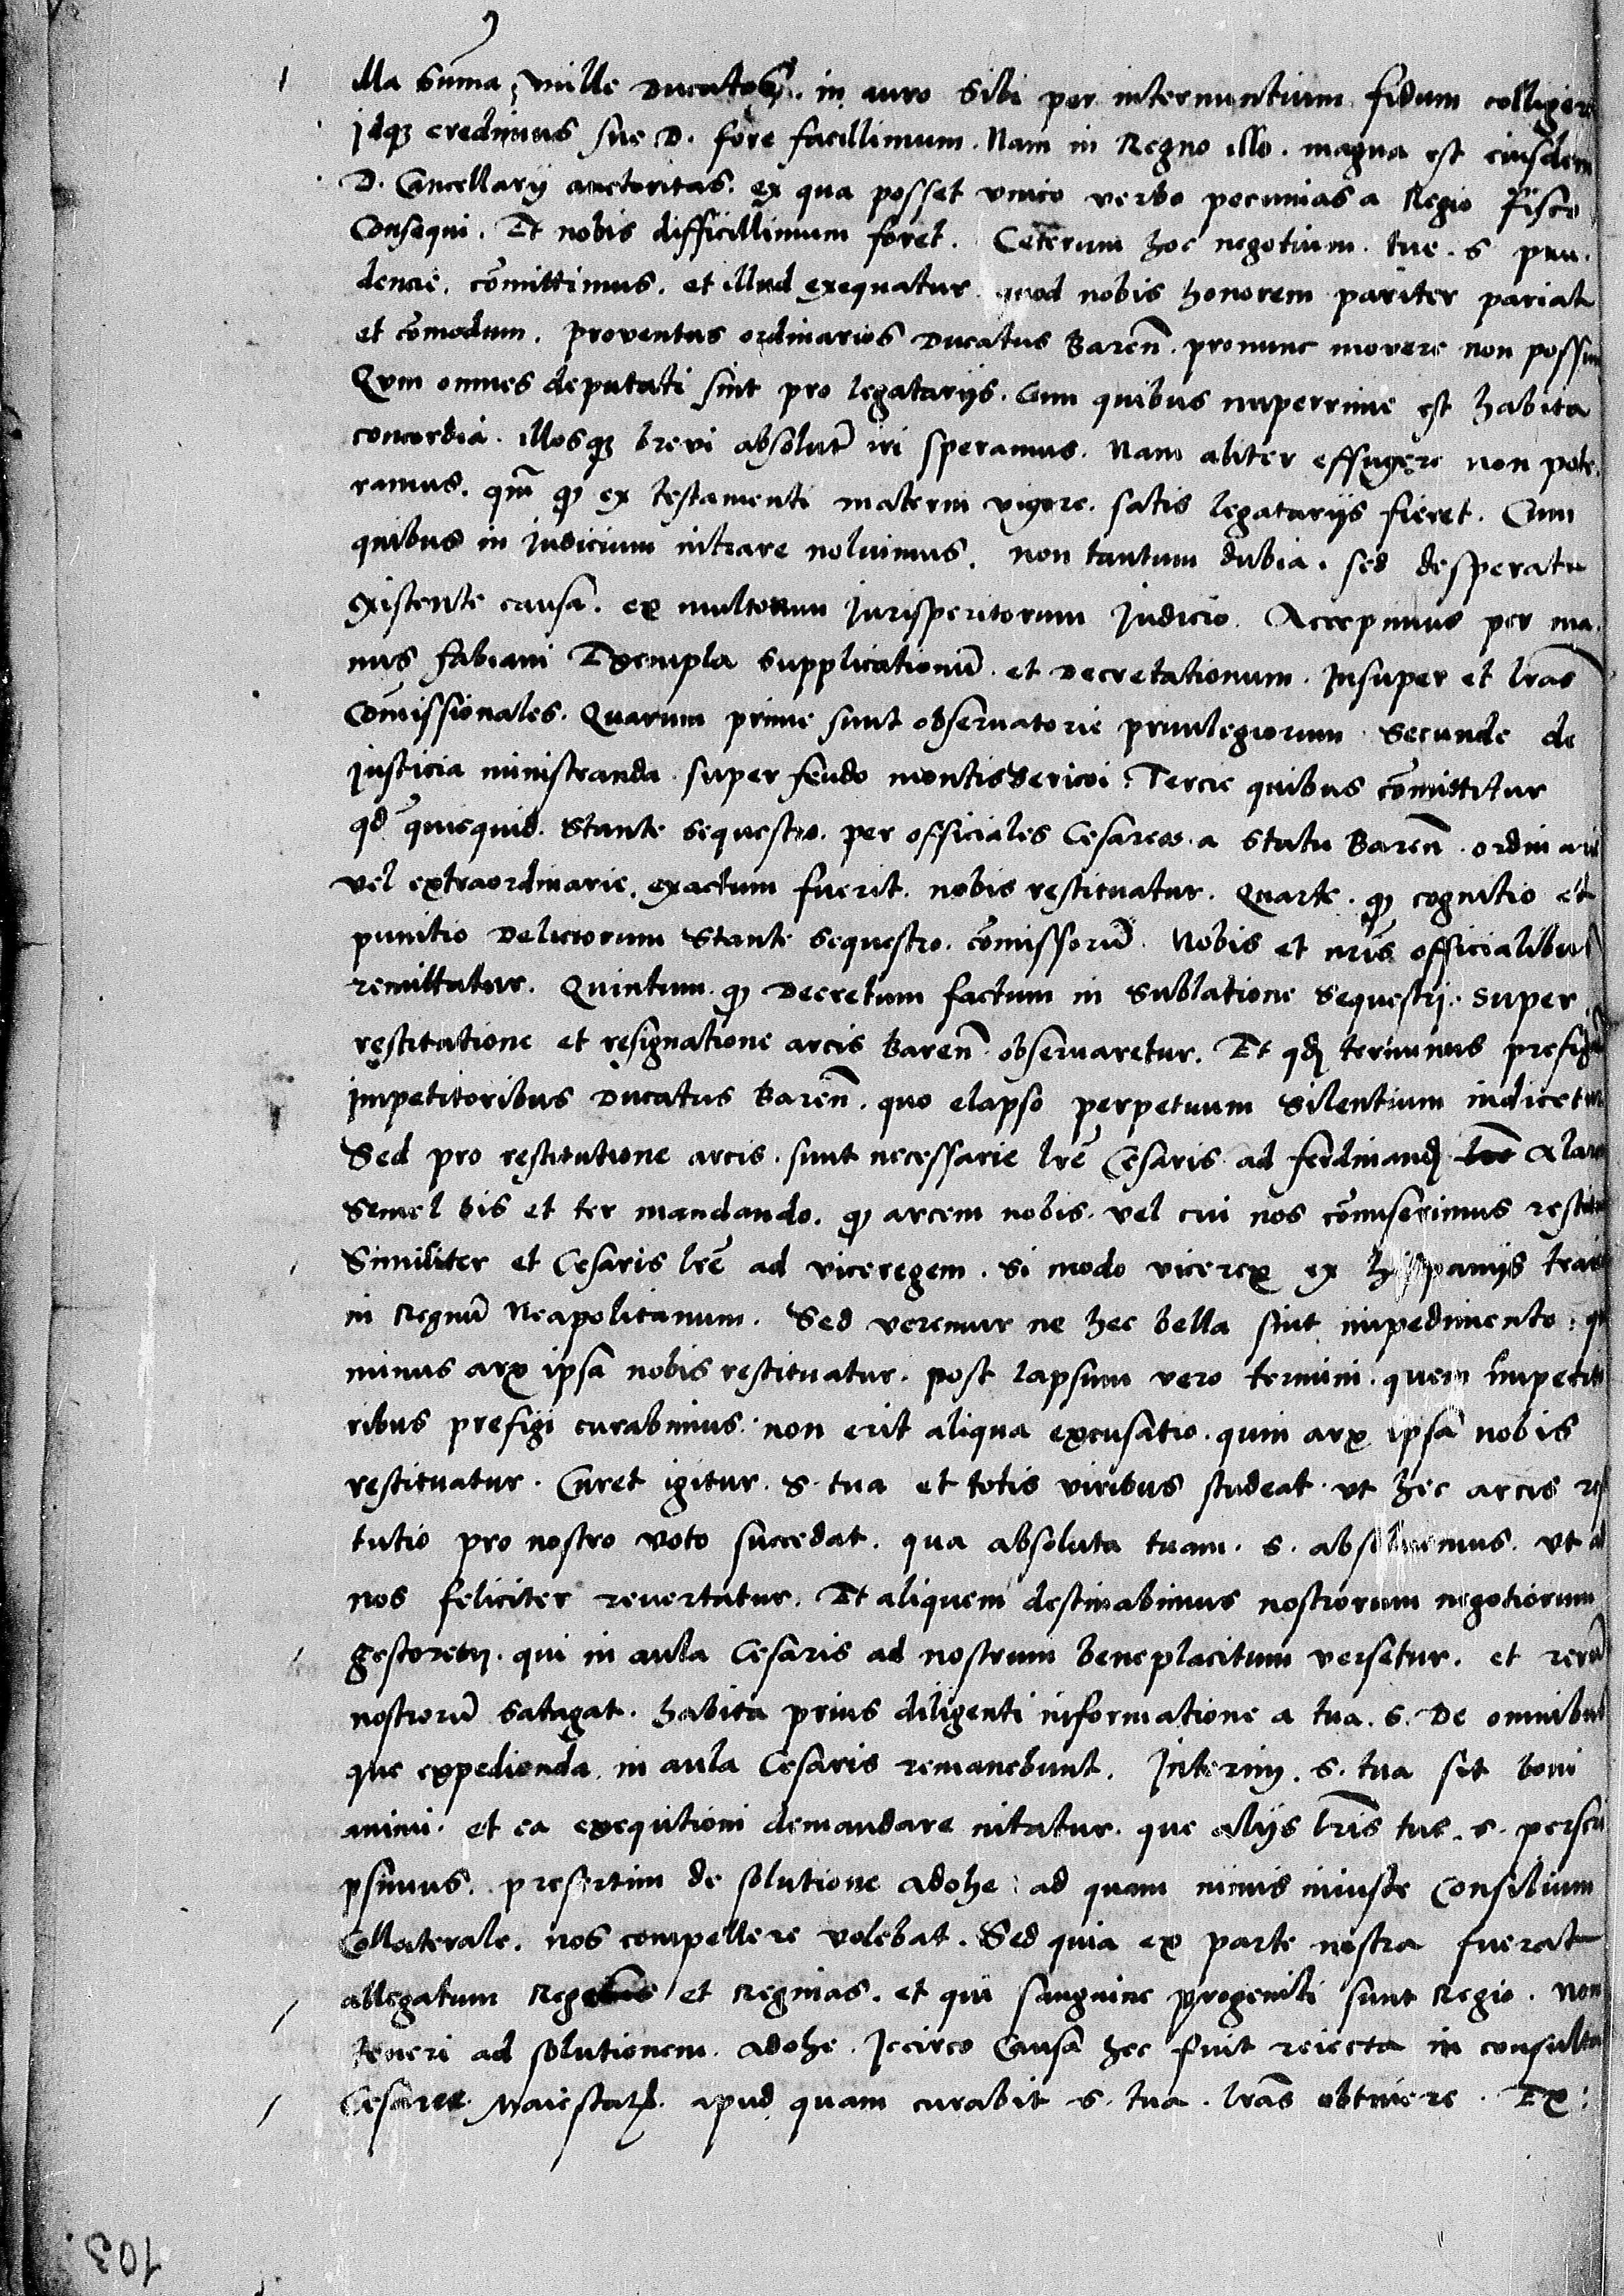 illa Suma, mille Ducatos. in auro sibi per internuntium fidum colligere
Idq3 credimus sue D. fore facillimum. Nam in Regno illo. magna est eiusdem
D. Cancellarij auctoritas. ex qua posset vnico verbo pecunias a Regio fisco
Consequi. Et nobis difficillimum foret. Ceterum hoc negotium. tue. s pru.
dencie. comittimus. et illud exequatur quod nobis honorem pariter pariat
et comodum. Proventus ordinarios Ducatus Baren. pronunc movere non possum
Qum omnes deputati sint pro legatarijs. Cum quibus nuperrime est habita
concordia. illosq3 brevi absolut iri speramus. Nam aliter effugere non pote.
ramus. qm q ex testamenti materni vigore. satis legatarijs fieret. Cum
quibus in Judicium intrare noluimus. non tantum dubia. sed desperata
existente causa. ex multorum Jurisperitorum Judicio. Accepimus per ma.
nus fabiani Exempla supplicationu. et Decretationum. Insuper et lras
Comissionales. Quarum prime sunt obseruatorie priuilegiorum. Secunde de
Justicia ministranda super feudo montisserici. Tercie quibus comittitur
qd quicquid. Stante sequestro. per officiales Cesareos. a Statu Baren. ordinarie
vel extraordinarie. exactum fuerit. nobis restituatur. Quarte. q cognitio et
punitio Delictorum Stante sequestro. comissoru. Nobis et nris officialibus
remittatur. Quintum. q Decretum factum in Sublatione Sequestri. super
restitutione et resignatione arcis Baren. obseruaretur. Et qd terminus prefig
Impetitoribus Ducatus Baren. quo elapso perpetuum Silentium indicetur
Sed pro restitutione arcis. sunt necessarie lre Cesaris ad ferdinand Alar
Semel bis et ter mandando. q arcem nobis. vel cui nos comiserimus restit
Similiter et Cesaris lre ad viceregem. si modo vicerex ex hispanijs trai
in Regnu Neapolitanum. Sed veremur ne hec bella sint impedimento: q
minus arx ipsa nobis restituatur. post lapsum vero termini. quem Impetit
ribus prefigi curabimus. non erit aliqua excusatio. quin arx ipsa nobis
restituatur. Curet igitur. S. tua et totis viribus studeat. vt hec arcis res
tutio pro nostro voto succedat. qua absoluta tuam. s. absoluemus. vt ad
nos feliciter reuertatur. Et aliquem destinabimus nostrorum negotiorum
gestorem. qui in aula Cesaris ad nostrum beneplacitum versetur. et reru
nostroru satagat. habita prius diligenti informatione a tua. s. De omnibus
que expedienda in aula Cesaris remanebunt. Interim. s. tua sit boni
animi. et ea exequtioni demandare nitatur. que alijs lris tue. s. perscri
psimus. presertim de solutione adohe: ad quam nimis iniuste Consilium
Collaterale. nos compellere volebat. Sed quia ex parte nostra fuerat
allegatum Reges et Reginas. et qui sanguine progeniti sunt Regio. Non
teneri ad solutionem. adohe. Jccirco Causa hec fuit reiecta in consulta
Cesaree Maiestat. apud quam curabit s. tua. lras obtinere. Ex:
103.